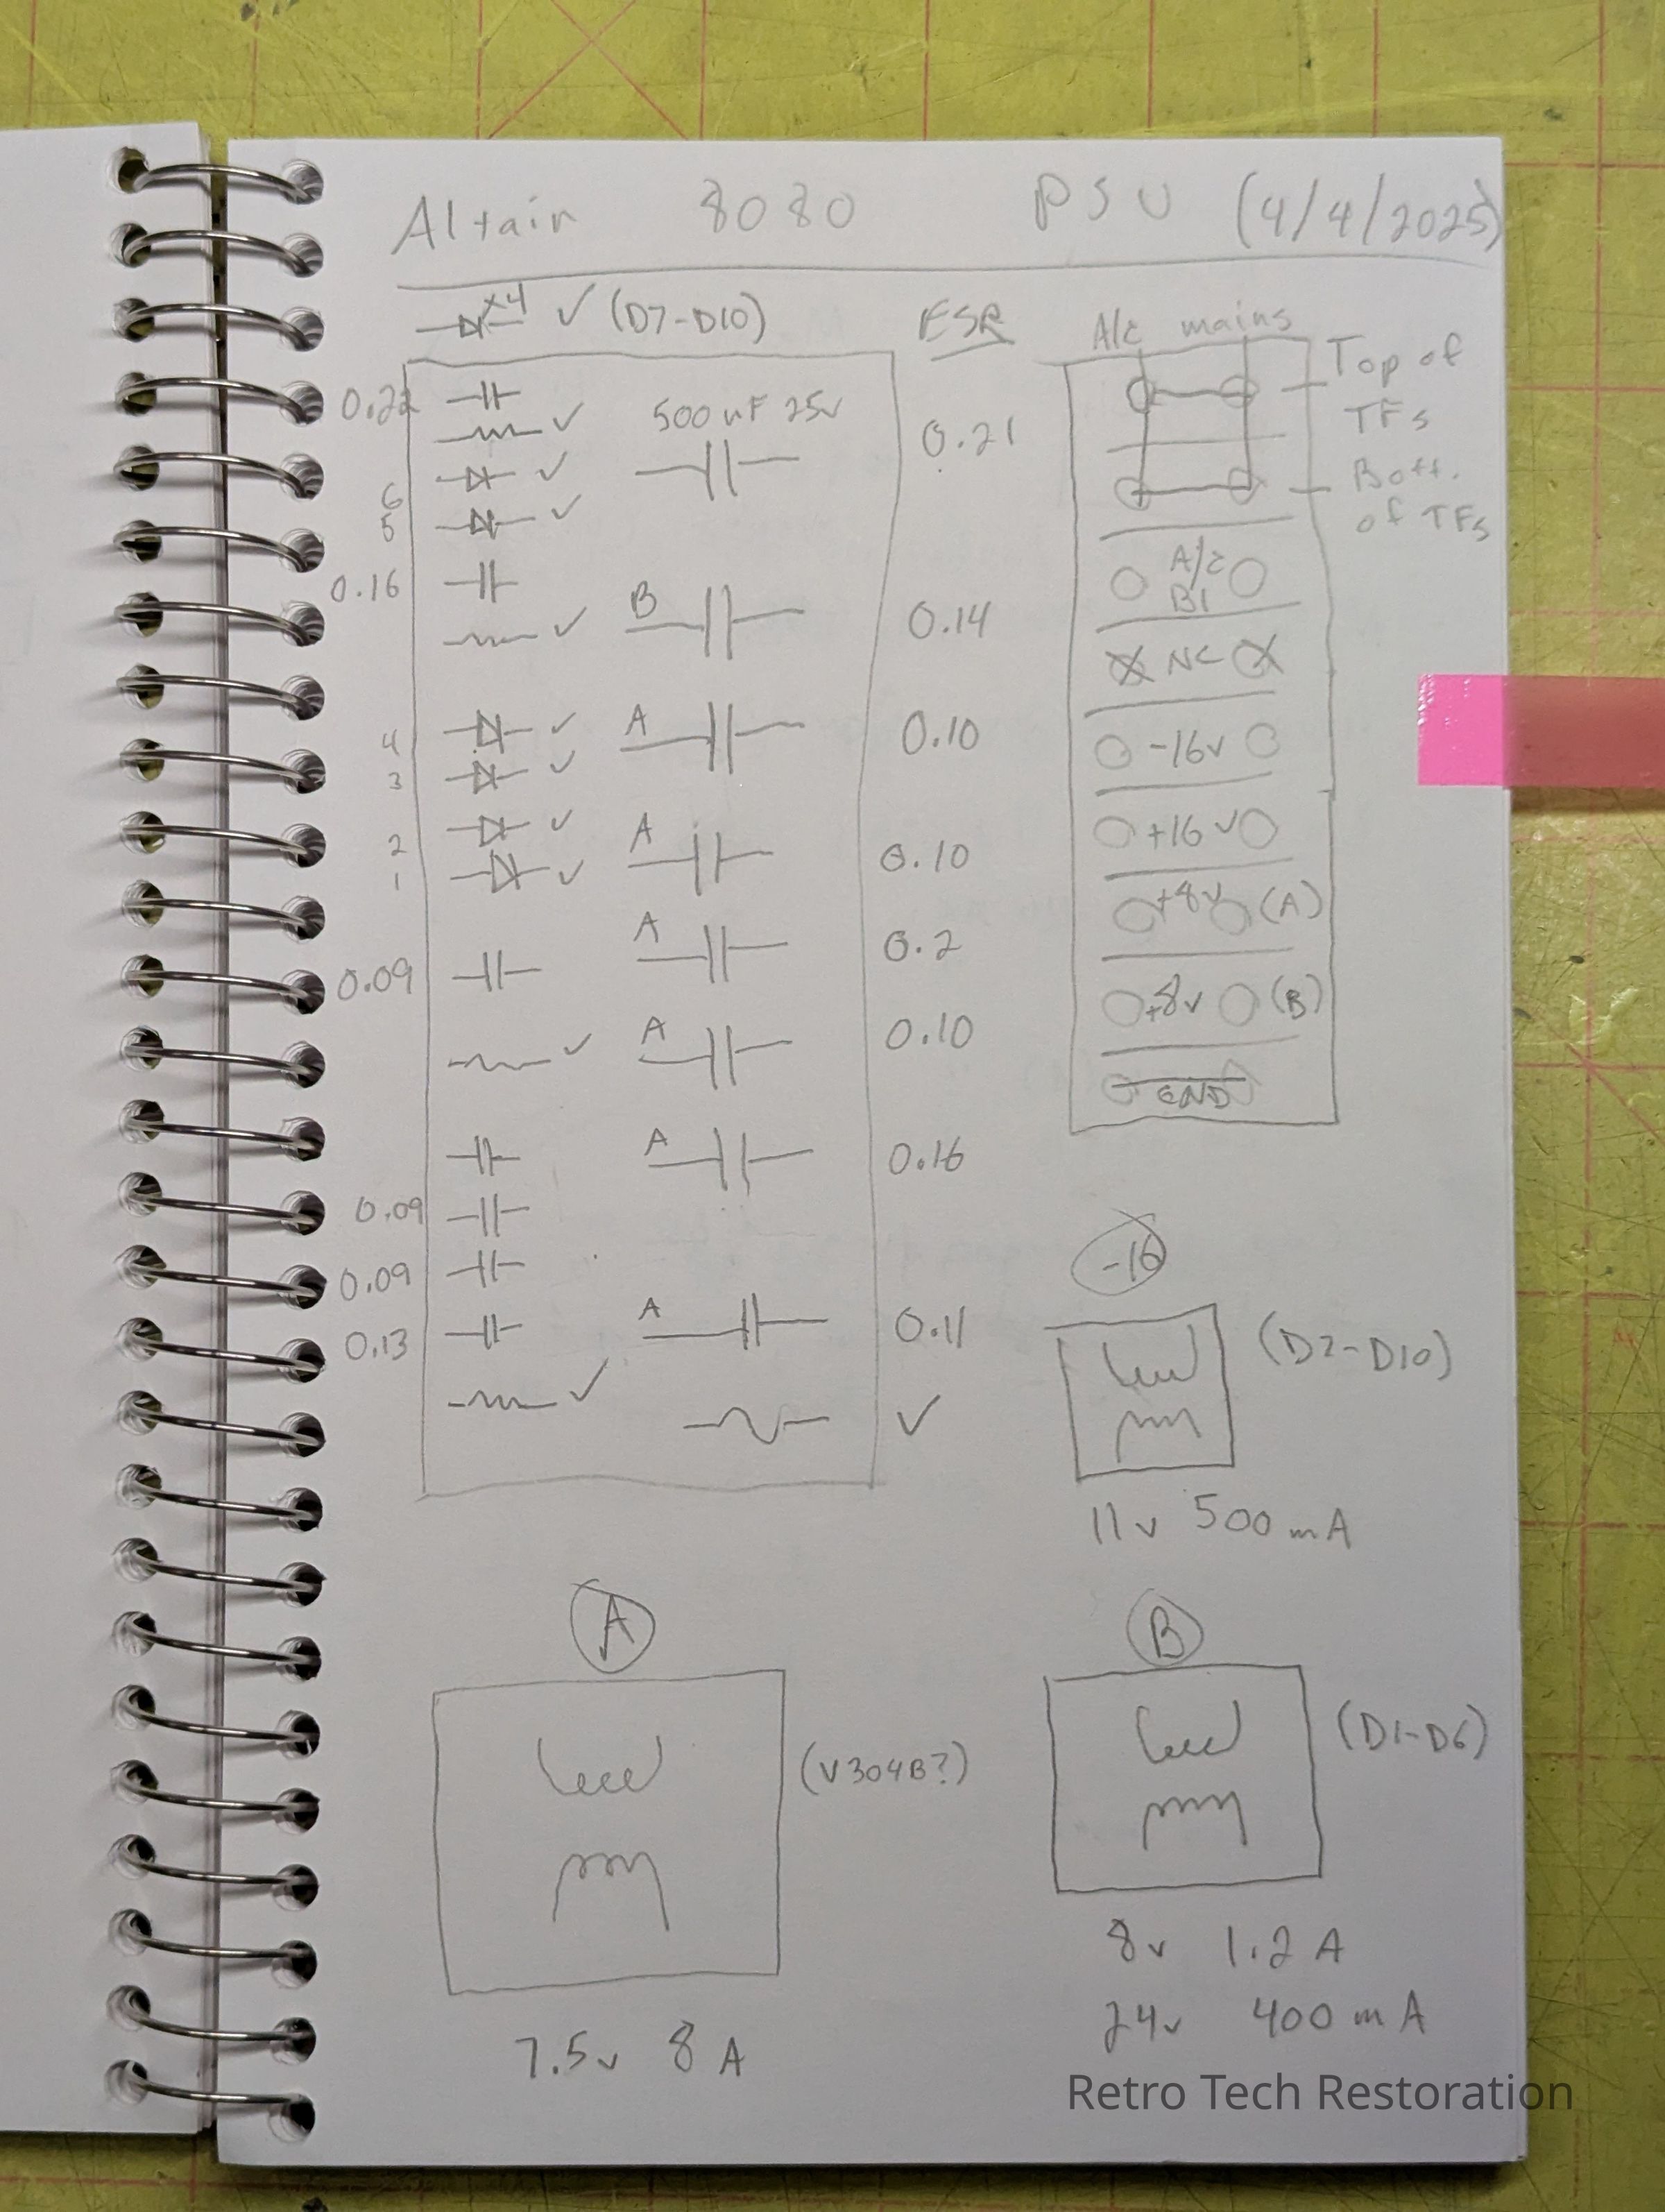 Altair 8080 PSU (4/4/2025)
x4 ✓ (D7-D10)
ESR
0.22
✓
500uF 25v
0.21
6 ✓
5 ✓
0.16
B
0.14
✓
4 ✓
A
0.10
3 ✓
2 ✓
A
0.10
1 ✓
A
0.2
0.09
✓
A
0.10
A
0.16
0.09
0.09
0.13
A
0.11
✓
✓
A/c mains
Top of
TFs
Bott.
of TFs
A/c
B1
NC
-16v
+16v
+8v (A)
+8v (B)
GND
-16
11v 500mA
A
(V304B?)
7.5v 8A
B
(D1-D6)
8v 1.2A
24v 400mA
Retro Tech Restoration